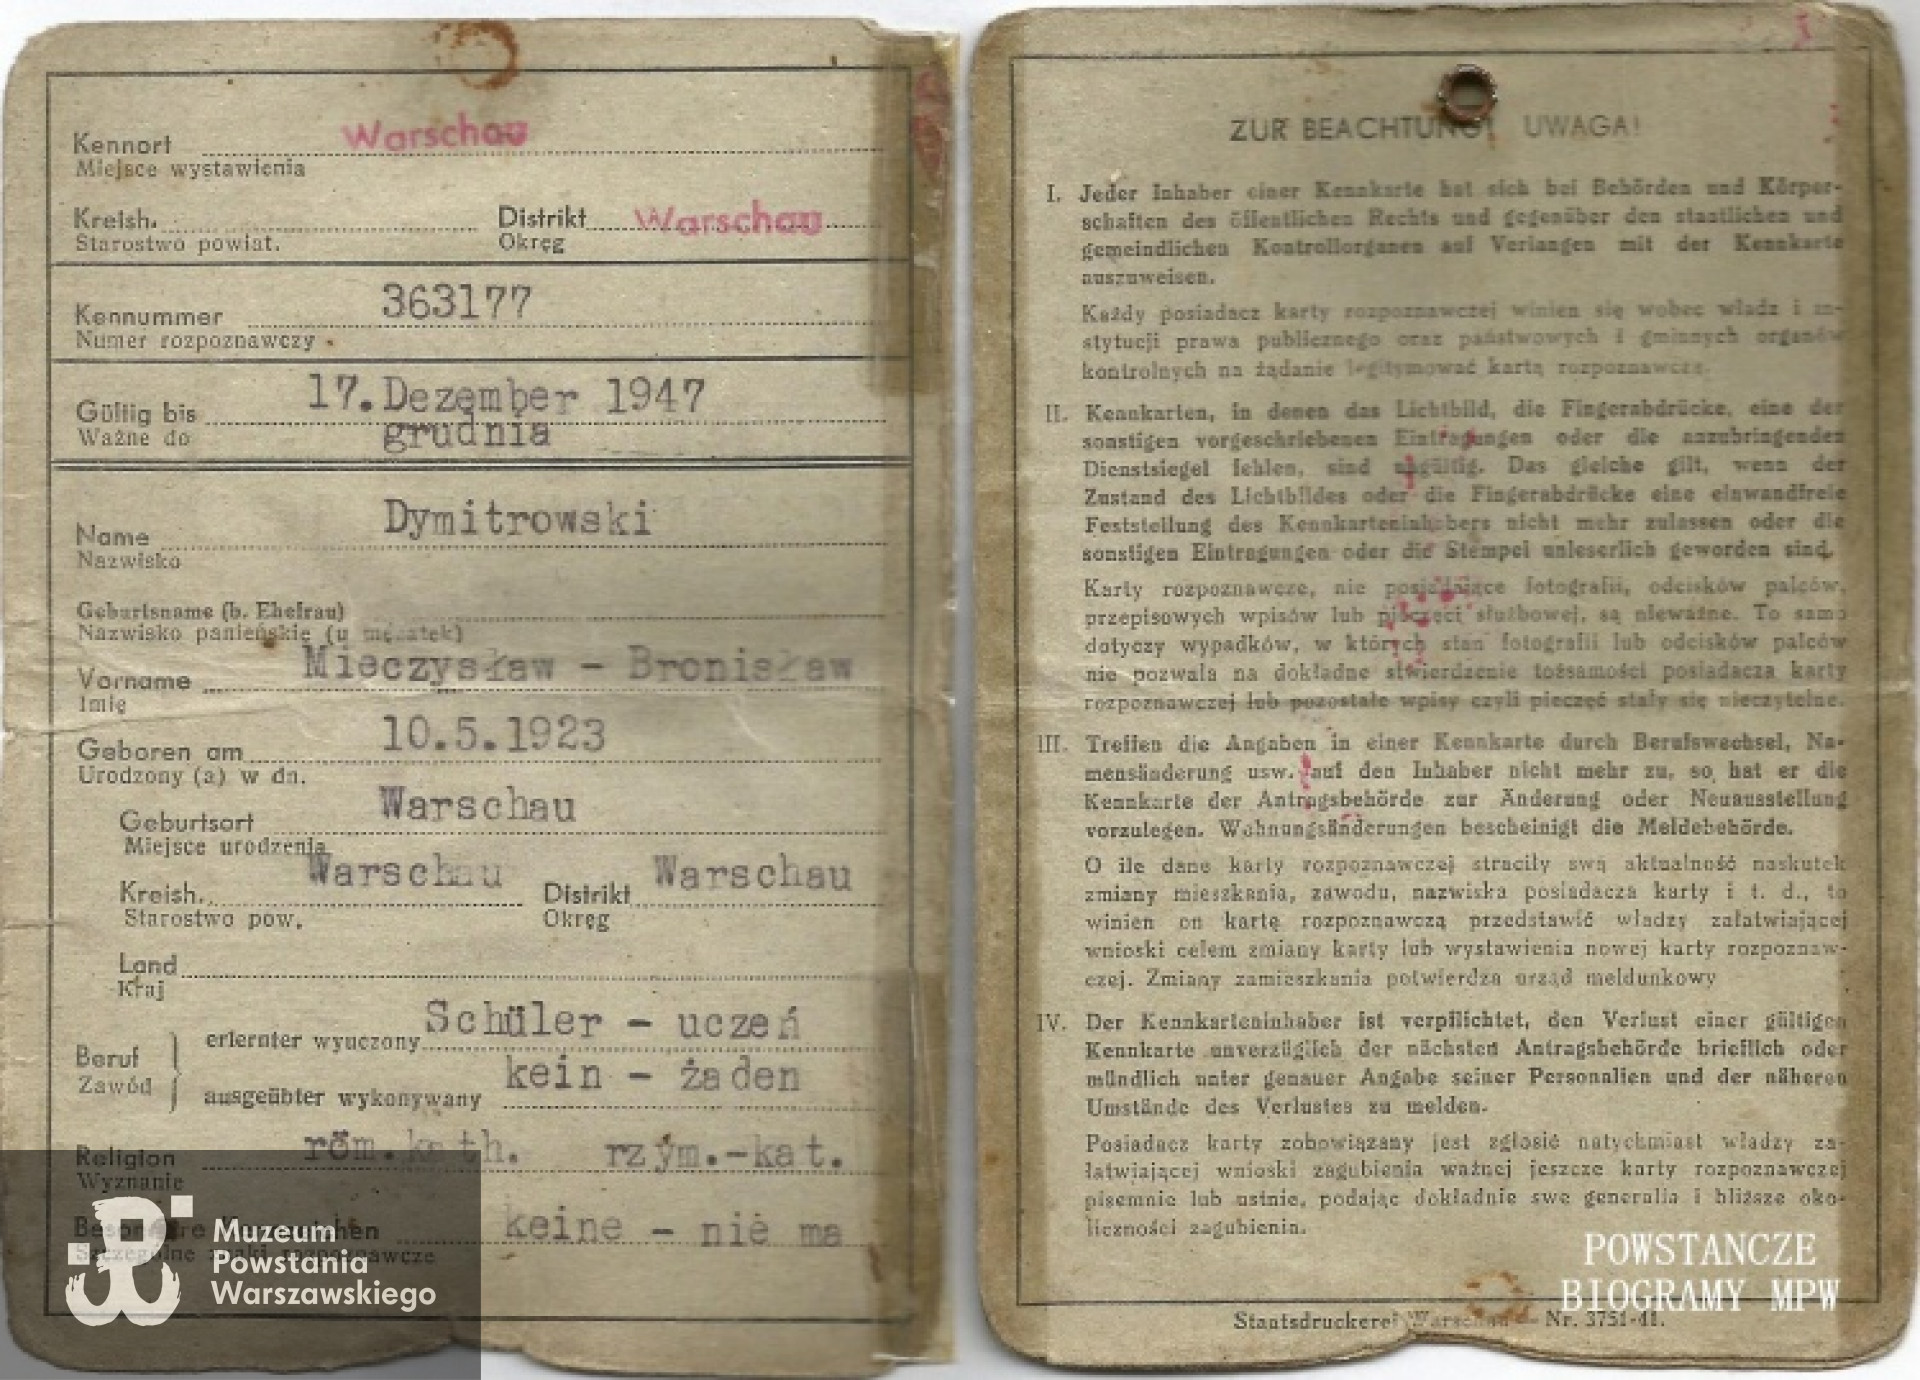 Kennort Warschau
Miejsce wystawienia
Kreish. Distrikt Warschau
Starostwo powiat. Okręg
Kennummer 363177
Numer rozpoznawczy
Gültig bis 17. Dezember 1947
Ważne do grudnia
Name Dymitrowski
Nazwisko
Geburtsname (b. Ehefrau)
Nazwisko panieńskie (u mężatek)
Vorname Mieczysław - Bronisław
Imię
Geboren am 10.5.1923
Urodzony (a) w dn.
Geburtsort Warschau
Miejsce urodzenia
Kreish. Warschau Distrikt Warschau
Starostwo pow. Okręg
Land
Kraj
Beruf erlernter wyuczony Schüler - uczeń
Zawód ausgeübter wykonywany kein - żaden
Religion röm.kath. rzym.-kat.
Wyznanie
keine - nie ma
Muzeum
Powstania
Warszawskiego
ZUR BEACHTUNG! UWAGA!
I. Jeder Inhaber einer Kennkarte hat sich bei Behörden und Körper-
schaften des öffentlichen Rechts und gegenüber den staatlichen und
gemeindlichen Kontrollorganen auf Verlangen mit der Kennkarte
auszuweisen.
Każdy posiadacz karty rozpoznawczej winien się wobec władz i in-
stytucji prawa publicznego oraz państwowych i gminnych organów
kontrolnych na żądanie legitymować kartą rozpoznawczą.
II. Kennkarten, in denen das Lichtbild, die Fingerabdrücke, eine der
sonstigen vorgeschriebenen Eintragungen oder die anzubringenden
Dienstsiegel fehlen, sind ungültig. Das gleiche gilt, wenn der
Zustand des Lichtbildes oder die Fingerabdrücke eine einwandfreie
Feststellung des Kennkarteninhabers nicht mehr zulassen oder die
sonstigen Eintragungen oder die Stempel unleserlich geworden sind.
Karty rozpoznawcze, nie posiadające fotografii, odcisków palców,
przepisowych wpisów lub pieczęci służbowej, są nieważne. To samo
dotyczy wypadków, w których stan fotografii lub odcisków palców
nie pozwala na dokładne stwierdzenie tożsamości posiadacza karty
rozpoznawczej lub pozostałe wpisy czyli pieczęć stały się nieczytelne.
III. Treffen die Angaben in einer Kennkarte durch Berufswechsel, Na-
mensänderung usw. auf den Inhaber nicht mehr zu, so hat er die
Kennkarte der Antragsbehörde zur Änderung oder Neuausstellung
vorzulegen. Wohnungsänderungen bescheinigt die Meldebehörde.
O ile dane karty rozpoznawczej straciły swą aktualność naskutek
zmiany mieszkania, zawodu, nazwiska posiadacza karty i t. d., to
winien on kartę rozpoznawczą przedstawić władzy załatwiającej
wnioski celem zmiany karty lub wystawienia nowej karty rozpoznaw-
czej. Zmiany zamieszkania potwierdza urząd meldunkowy
IV. Der Kennkarteninhaber ist verpflichtet, den Verlust einer gültigen
Kennkarte unverzüglich der nächsten Antragsbehörde brieflich oder
mündlich unter genauer Angabe seiner Personalien und der näheren
Umstände des Verlustes zu melden.
Posiadacz karty zobowiązany jest zgłosić natychmiast władzy za-
łatwiającej wnioski zagubienia ważnej jeszcze karty rozpoznawczej
pisemnie lub ustnie, podając dokładnie swe generalia i bliższe oko-
liczności zagubienia.
POWSTANCZE
BIOGRAMY MPW
Staatsdruckerei Warschau - Nr. 3751-41.